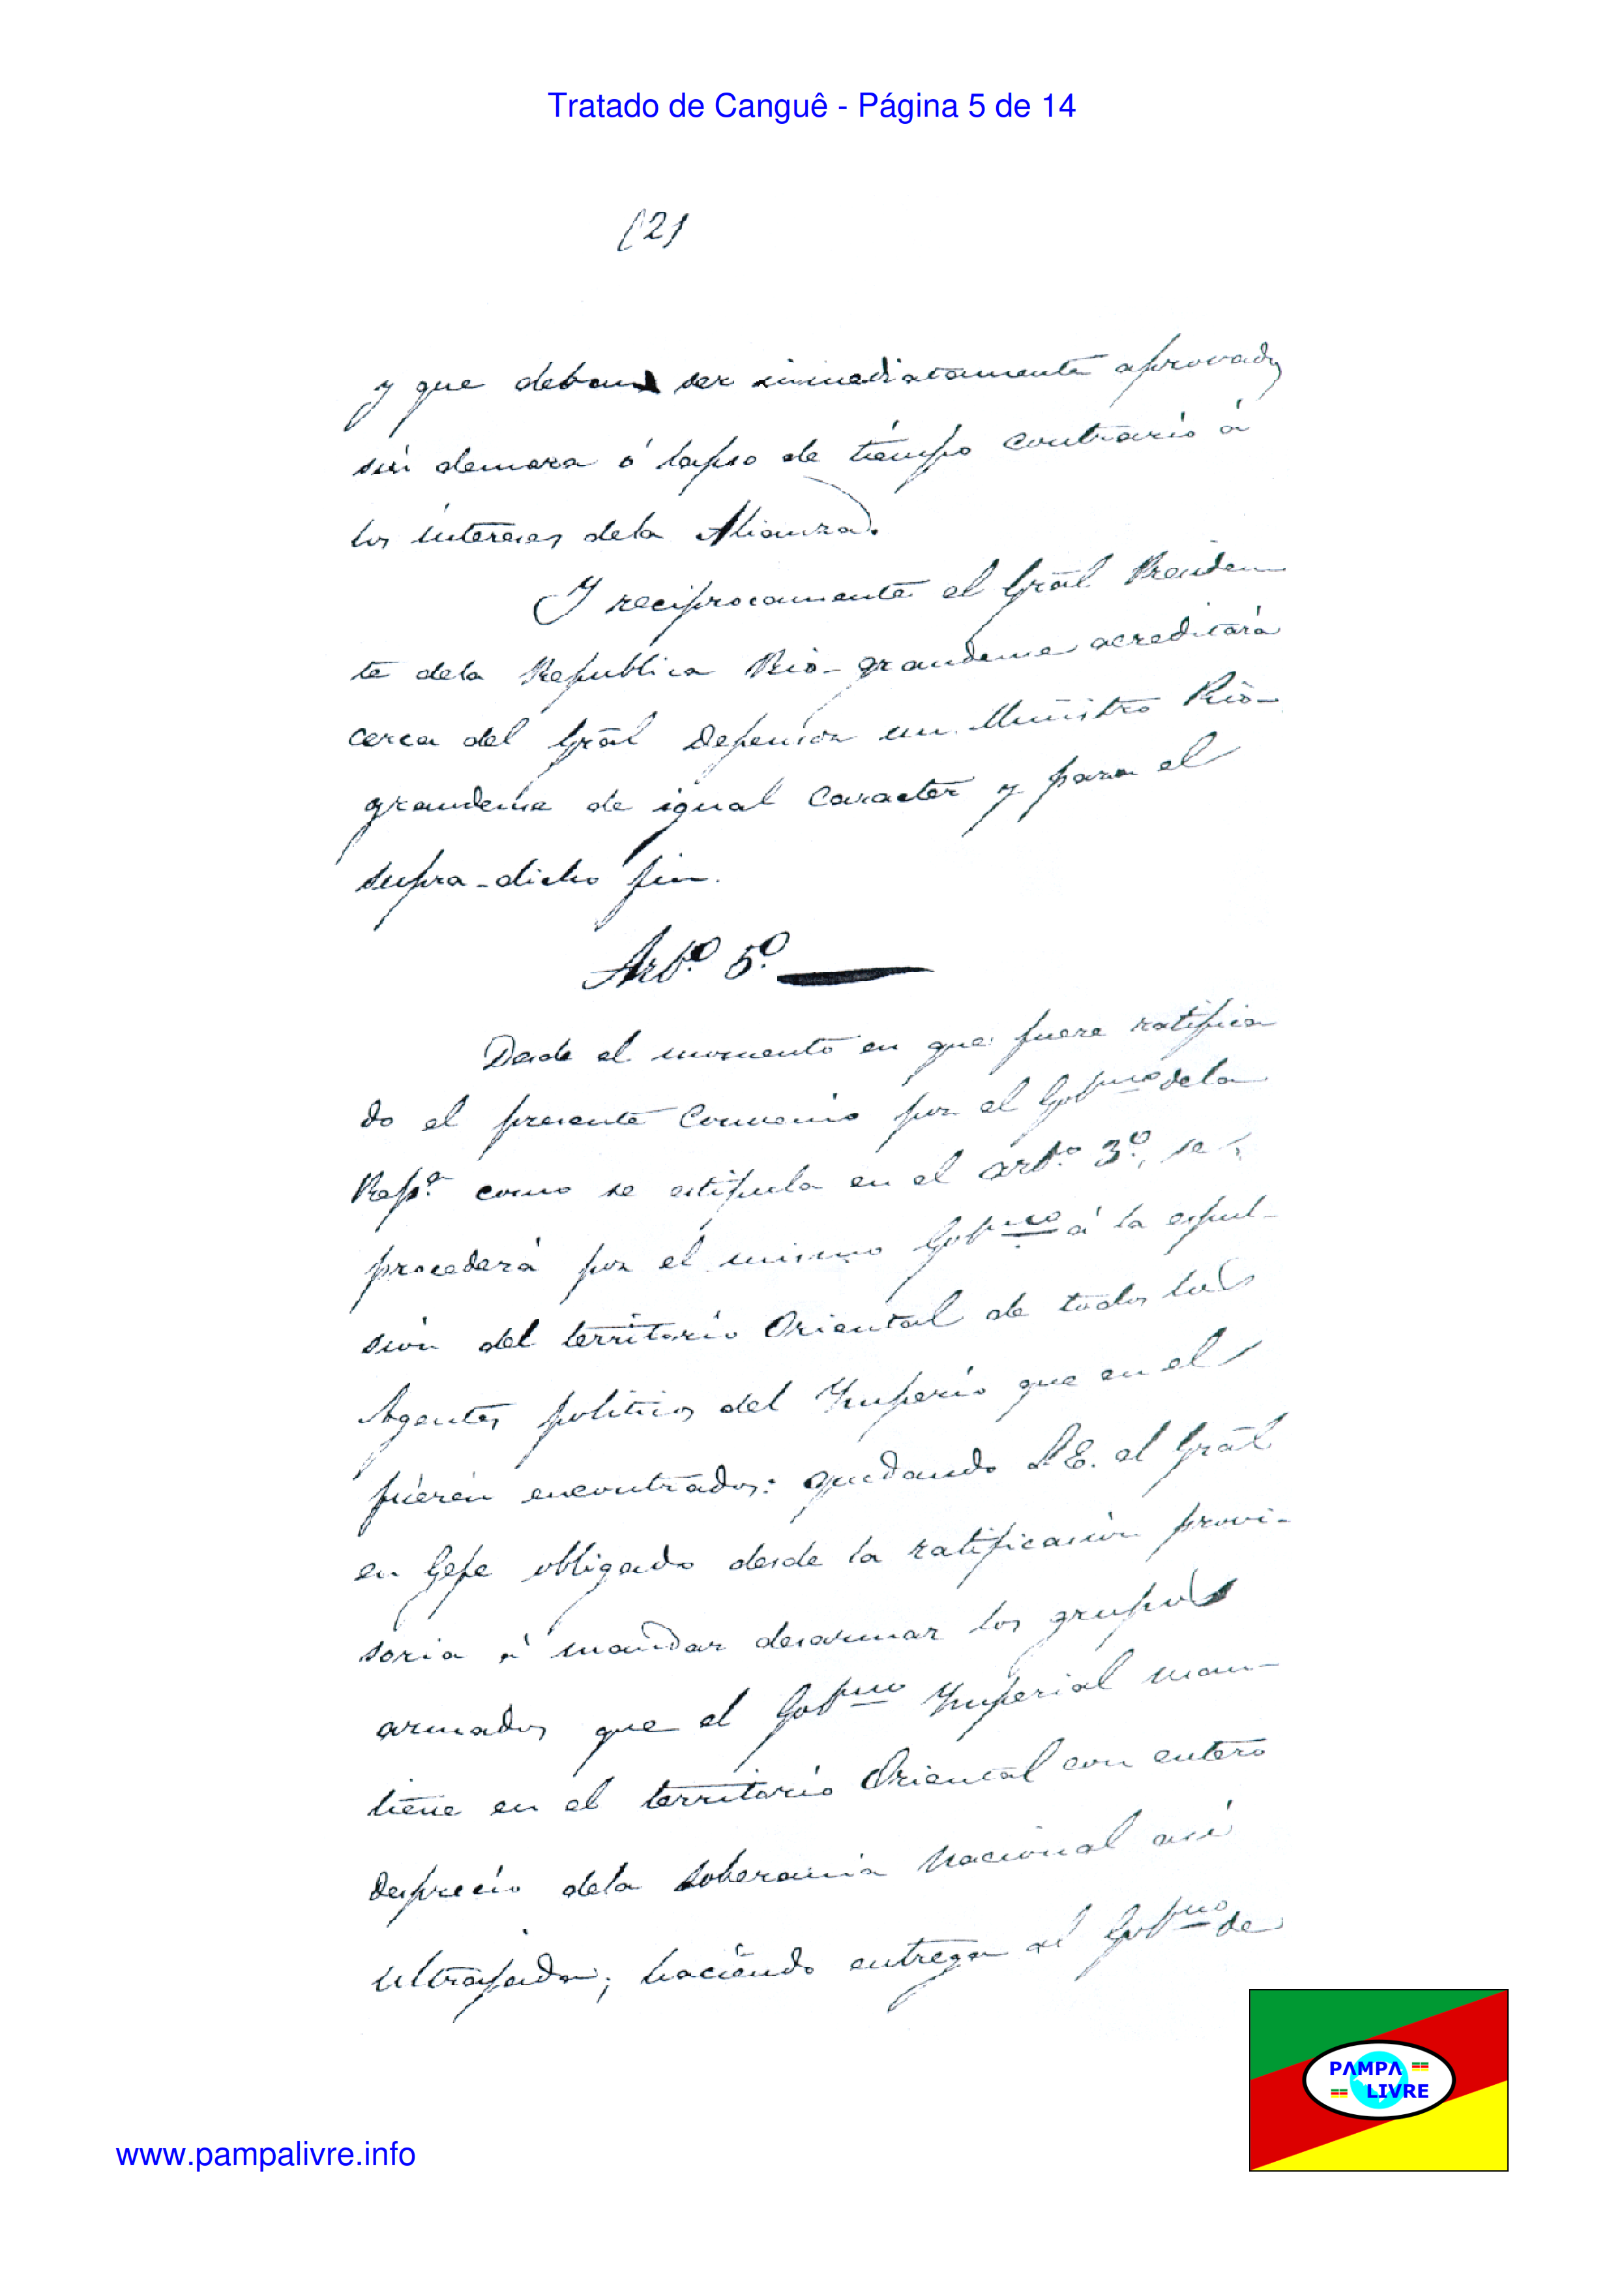 Tratado de Canguê - Página 5 de 14
(2)
y que deban ser inmediatamente aprovados
sin demora ó lapso de tiempo contrario á
los intereses dela Alianza.
Y reciprocamente el Grāl Presiden
te dela Republica Rio-grandense acreditará
cerca del Grāl Defensor un Ministro Rio-
grandense de igual Caracter y para el
supra-dicho fin.
Artº. 5º.
Desde el momento en que fuere ratifica
do el presente Convenio por el Gobno dela
Repª como se estipula en el artº. 3º, se
procederá por el mismo Gobno á la espul-
sión del territorio Oriental de todos los
Agentes politicos del Imperio que en el
fueren encontrados: quedando S.E. el Grāl
en Gefe obligado desde la ratificasión provi-
soria á mandar desarmar los grupos
armados que el Gobno Imperial man-
tiene en el territorio Oriental con entero
desprecio dela soberania Nacional asi
ultrajada; haciendo entrega al Gobno de
PAMPA
LIVRE
www.pampalivre.info